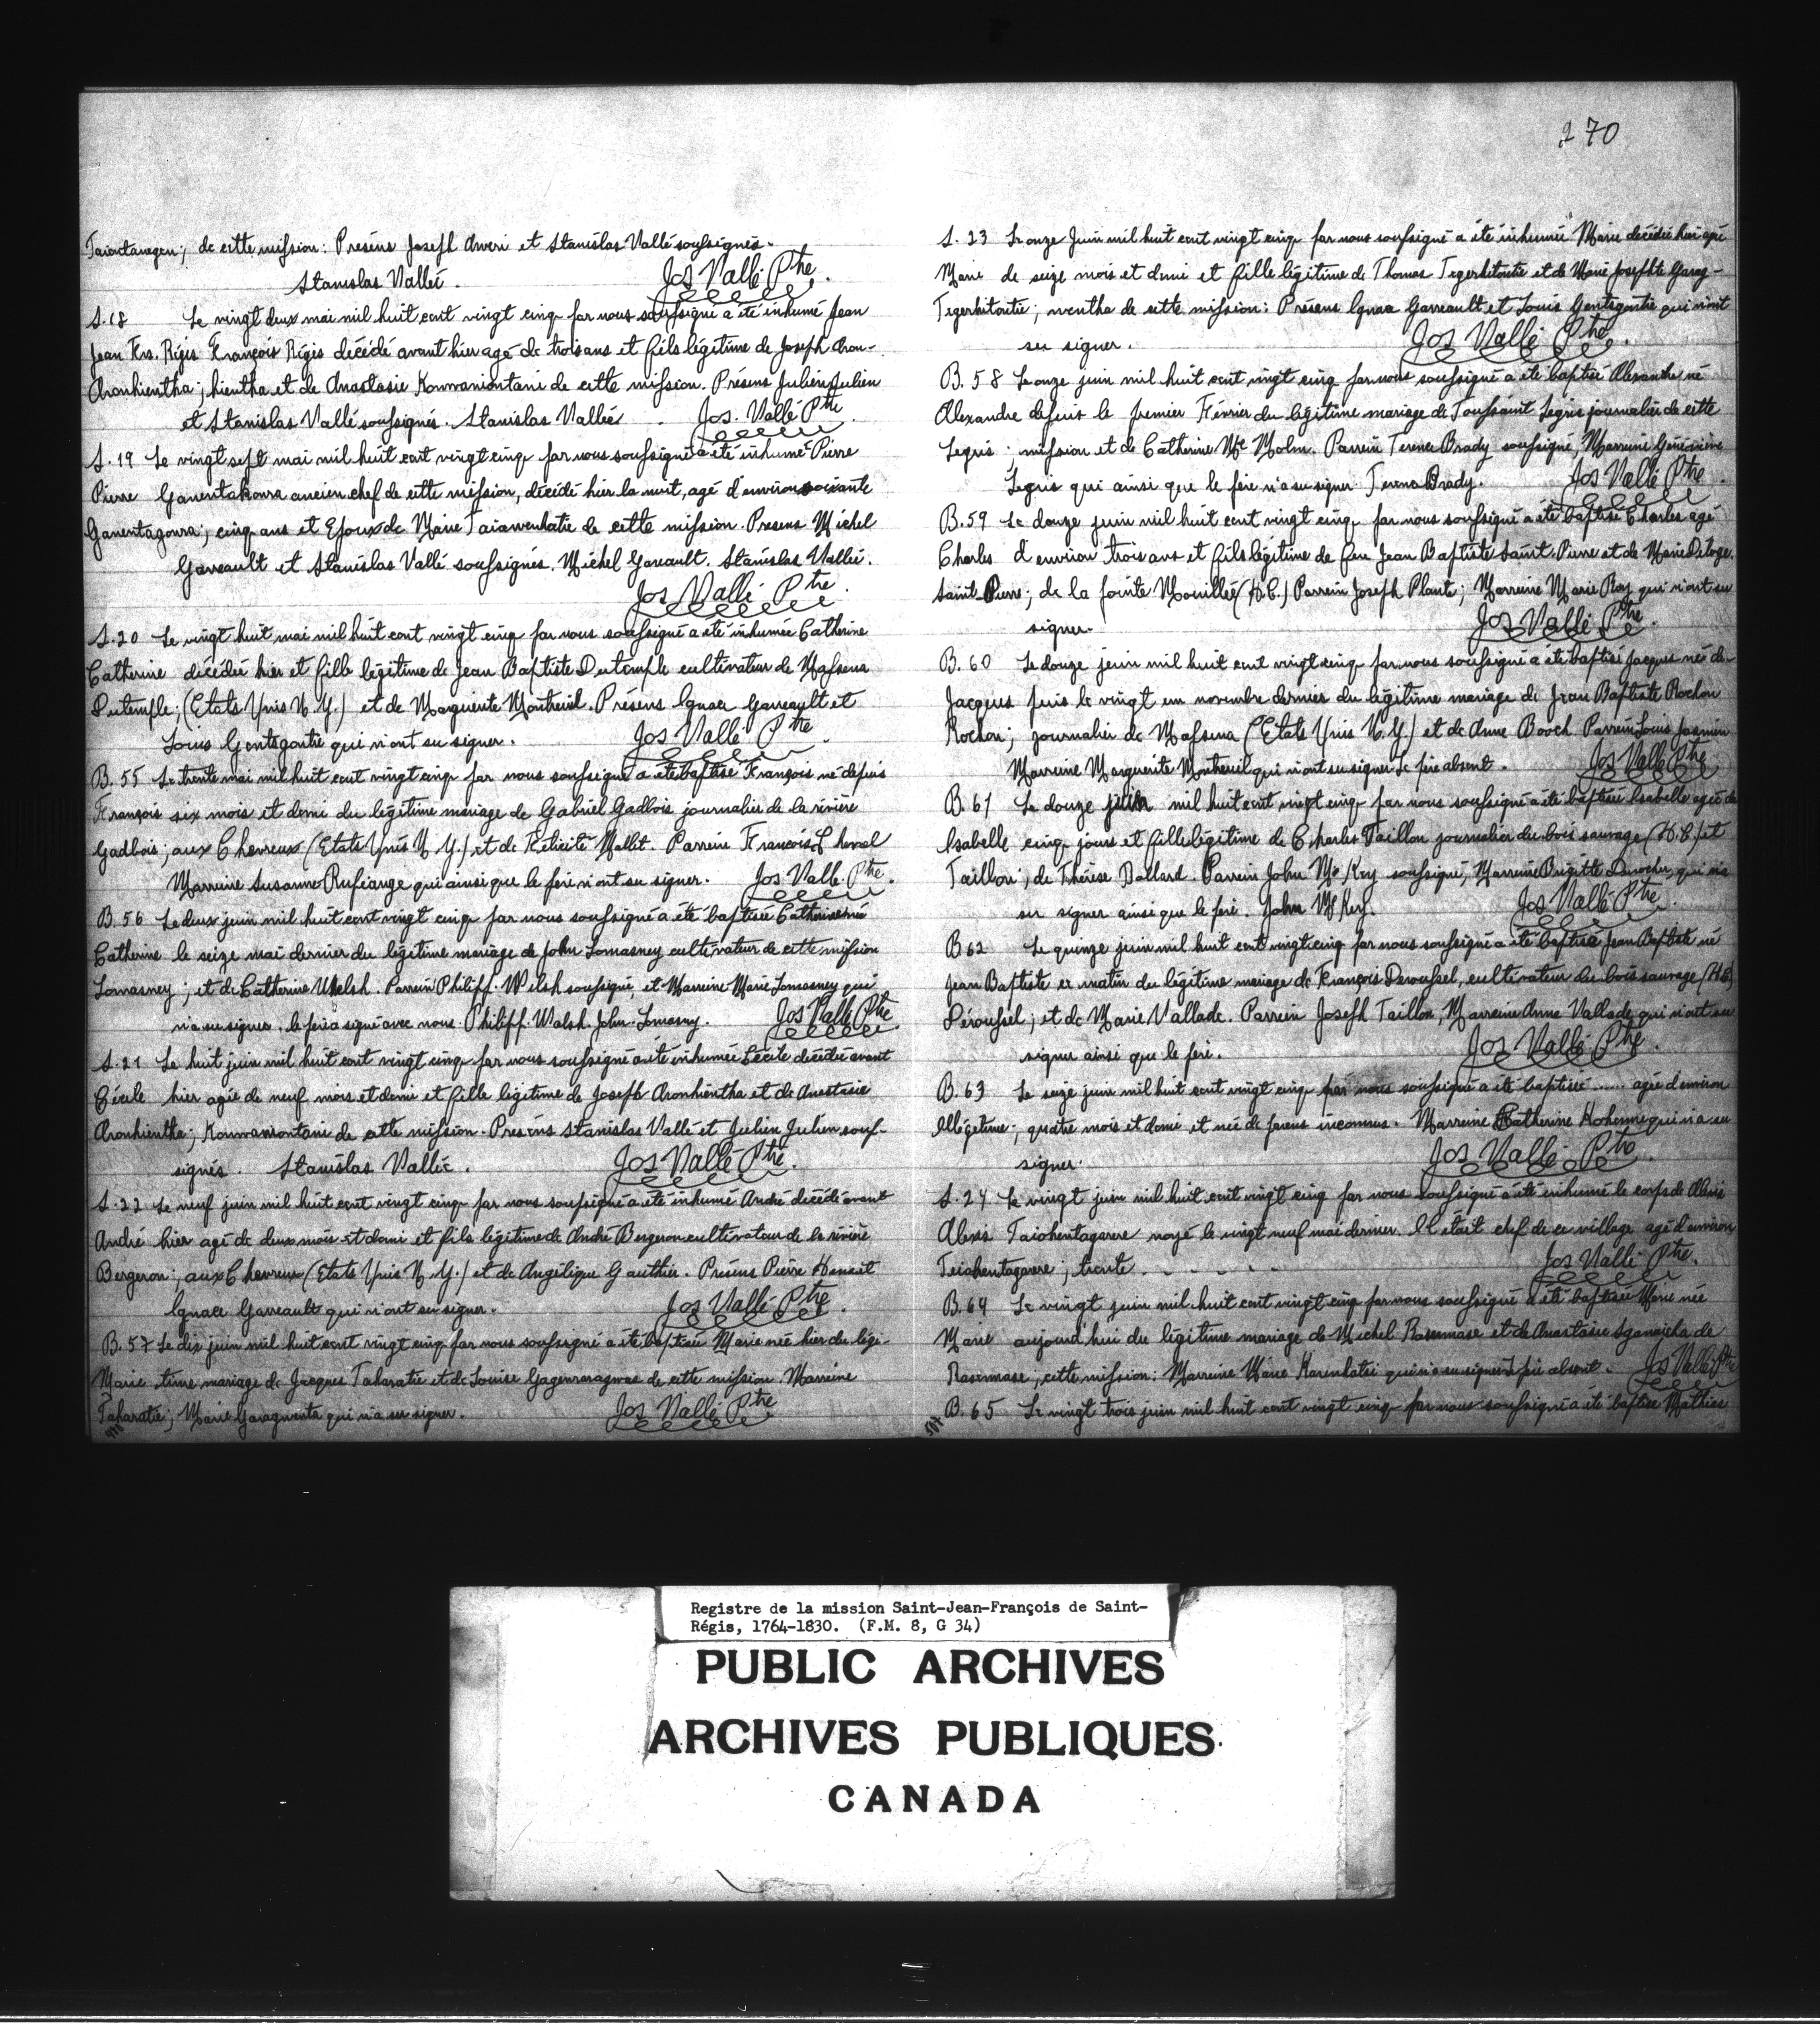 270
Taiontanegen; de cette mission: Présens Joseph Aweri et Stanislas Vallé soussignés.
Stanislas Vallé. Jos Vallé Ptre.
S. 18 Le vingt deux mai mil huit cent vingt cinq par nous soussigné a été inhumé Jean
Jean Frs. Régis François Régis décédé avant hier agé de trois ans et fils légitime de Joseph Aron-
Aronhientha; hientha et de Anastasie Konwaniontani de cette mission. Présens Julien Julien
et Stanislas Vallé soussignés. Stanislas Vallée. Jos. Vallé Ptre.
S. 19 Le vingt sept mai mil huit cent vingt cinq par nous soussigné a été inhumé Pierre
Pierre Ganentakowa ancien chef de cette mission, décédé hier la nuit, agé d'environ soixante
Ganentagowa; cinq ans et Epoux de Marie Taiawenhatie de cette mission. Presens Michel
Gareault et Stanislas Vallé soussignés. Michel Gareault. Stanislas Vallée.
Jos Vallé Ptre.
S. 20 Le vingt huit mai mil huit cent vingt cinq par nous soussigné a été inhumée Catherine
Catherine décédée hier et fille légitime de Jean Baptiste Dutemple cultivateur de Massena
Dutemple; (Etats Unis N. Y.) et de Marguerite Montreuil. Présens Ignace Garreault et
Louis Gentsgontie qui n'ont su signer. Jos Vallé Ptre.
B. 55 Le trente mai mil huit cent vingt cinq par nous soussigné a été baptisé François né depuis
François six mois et demi du légitime mariage de Gabriel Gadbois journalier de la rivière
Gadbois; aux Chevreux (Etats Unis N. Y.) et de Félicité Mallet. Parrein François Lheval
Marreine Susanne Rufiange qui ainsi que le père n'ont su signer. Jos Vallé Ptre.
B. 56 Le deux juin mil huit cent vingt cinq par nous soussigné a été baptisée Catherine née
Catherine le seize mai dernier du légitime mariage de John Lomasney cultivateur de cette mission
Lomasney; et de Catherine Welsh. Parrein Philipp. Welsh soussigné, et Marreine Marie Lomasney qui
n'a su signer. le père a signé avec nous. Philipp. Walsh. John. Lomasny. Jos Vallé Ptre.
S. 21 Le huit juin mil huit cent vingt cinq par nous soussigné a été inhumée Cécile décédée avant
Cécile hier agée de neuf mois et demi et fille légitime de Joseph Aronhientha et de Anastasie
Aronhientha; Konwaniontani de cette mission. Présens Stanislas Vallé et Julien Julien sous-
signés. Stanislas Vallée. Jos Vallé Ptre.
S. 22 Le neuf juin mil huit cent vingt cinq par nous soussigné a été inhumé André décédé avant
André hier agé de deux mois et demi et fils légitime de André Bergeron cultivateur de la rivière
Bergeron; aux Chevreux (Etats Unis N. Y.) et de Angélique Gauthier. Présens Pierre Henault
Ignace Garreault qui n'ont su signer. Jos Vallé Ptre.
B. 57 Le dix juin mil huit cent vingt cinq par nous soussigné a été baptisée Marie née hier du légi-
Marie time mariage de Jacques Taharatie et de Louise Gagenraragwas de cette mission. Marreine
Taharatie; Marie Garagwenta qui n'a su signer. Jos Vallé Ptre
S. 23 Le onze Juin mil huit cent vingt cinq par nous soussigné a été inhumée Marie décédée hier agée
Marie de seize mois et demi et fille légitime de Thomas Tegerhitontie et de Marie Josephte Garag-
Tegerhitontie; wentha de cette mission: Présens Ignace Garreault et Louis Gentsgontie qui n'ont
su signer. Jos Vallé Ptre.
B. 58 Le onze juin mil huit cent vingt cinq par nous soussigné a été baptisé Alexandre né
Alexandre depuis le premier Février du légitime mariage de Toussaint Legris journalier de cette
Legris; mission et de Catherine Mc Molm. Parrein Terence Brady soussigné, Marreine Géneviève
Legris qui ainsi que le père n'a su signer. Terence Brady. Jos Vallé Ptre.
B. 59 Le douze juin mil huit cent vingt cinq par nous soussigné a été baptisé Charles agé
Charles d'environ trois ans et fils légitime de feu Jean Baptiste Saint-Pierre et de Marie Deloge.
Saint-Pierre; de la pointe Mouillée (H.C.) Parrein Joseph Plante; Marreine Marie Roy qui n'ont su
signer. Jos Vallé Ptre.
B. 60 Le douze juin mil huit cent vingt cinq par nous soussigné a été baptisé Jacques né de-
Jacques puis le vingt un novembre dernier du légitime mariage de Jean Baptiste Rochon
Rochon; journalier de Massena (Etats Unis N. Y.) et de Anne Booch. Parrein Louis Jasmin
Marreine Marguerite Montreuil qui n'ont su signer Le père absent. Jos Vallé Ptre
B. 61 Le douze juin mil huit cent vingt cinq par nous soussigné a été baptisée Isabelle agée de
Isabelle cinq jours et fille légitime de Charles Taillon journalier du bois sauvage (H.C.) et
Taillon; de Thérèse Dallard. Parrein John Mc Key soussigné; Marreine Brigitte Derocher, qui n'a
su signer ainsi que le père. John Mc Key. Jos Vallé Ptre.
B 62 Le quinze juin mil huit cent vingt cinq par nous soussigné a été baptisé Jean Baptiste né
Jean Baptiste ce matin du légitime mariage de François Deroussel, cultivateur du bois sauvage (H.C.)
Déroussel; et de Marie Vallade. Parrein Joseph Taillon, Marreine Anne Vallade qui n'ont su
signer ainsi que le père. Jos Vallé Ptre.
B. 63 Le seize juin mil huit cent vingt cinq par nous soussigné a été baptisée ...... agée d'environ
Illégitime; quatre mois et demi et née de parens inconnus. Marreine Catherine Kohenne qui n'a su
signer. Jos Vallé Ptre.
S. 24 Le vingt juin mil huit cent vingt cinq par nous soussigné a été inhumé le corps de Alexis
Alexis Taiohentagarere noyé le vingt neuf mai dernier. Il était chef de ce village agé d'environ
Teiohentagarere; trente . . . . . . Jos Vallé Ptre.
B. 64 Le vingt juin mil huit cent vingt cinq par nous soussigné a été baptisée Marie née
Marie aujourd'hui du légitime mariage de Michel Rasennase et de Anastasie Sganaicha de
Rasennase, cette mission: Marreine Marie Karenhatsi qui n'a su signer Le père absent. Jos Vallé Ptre
B. 65 Le vingt trois juin mil huit cent vingt cinq par nous soussigné a été baptisé Mathias
Registre de la mission Saint-Jean-François de Saint-
Régis, 1764-1830. (F.M. 8, G 34)
PUBLIC ARCHIVES
ARCHIVES PUBLIQUES
CANADA